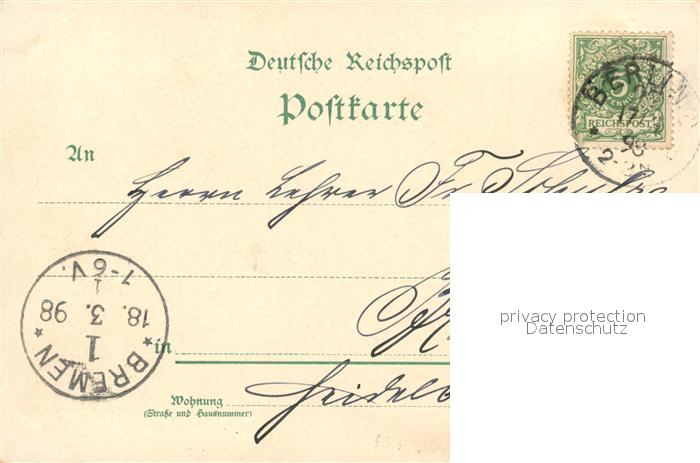 Deutsche Reichspost
Postkarte
5
REICHSPOST
BERLIN
17
98
2-3
An
Herrn Lehrer Fr.
privacy protection
Datenschutz
BREMEN
1
18. 3. 98
7-6V.
in
Wohnung
(Straße und Hausnummer)
Heidelb